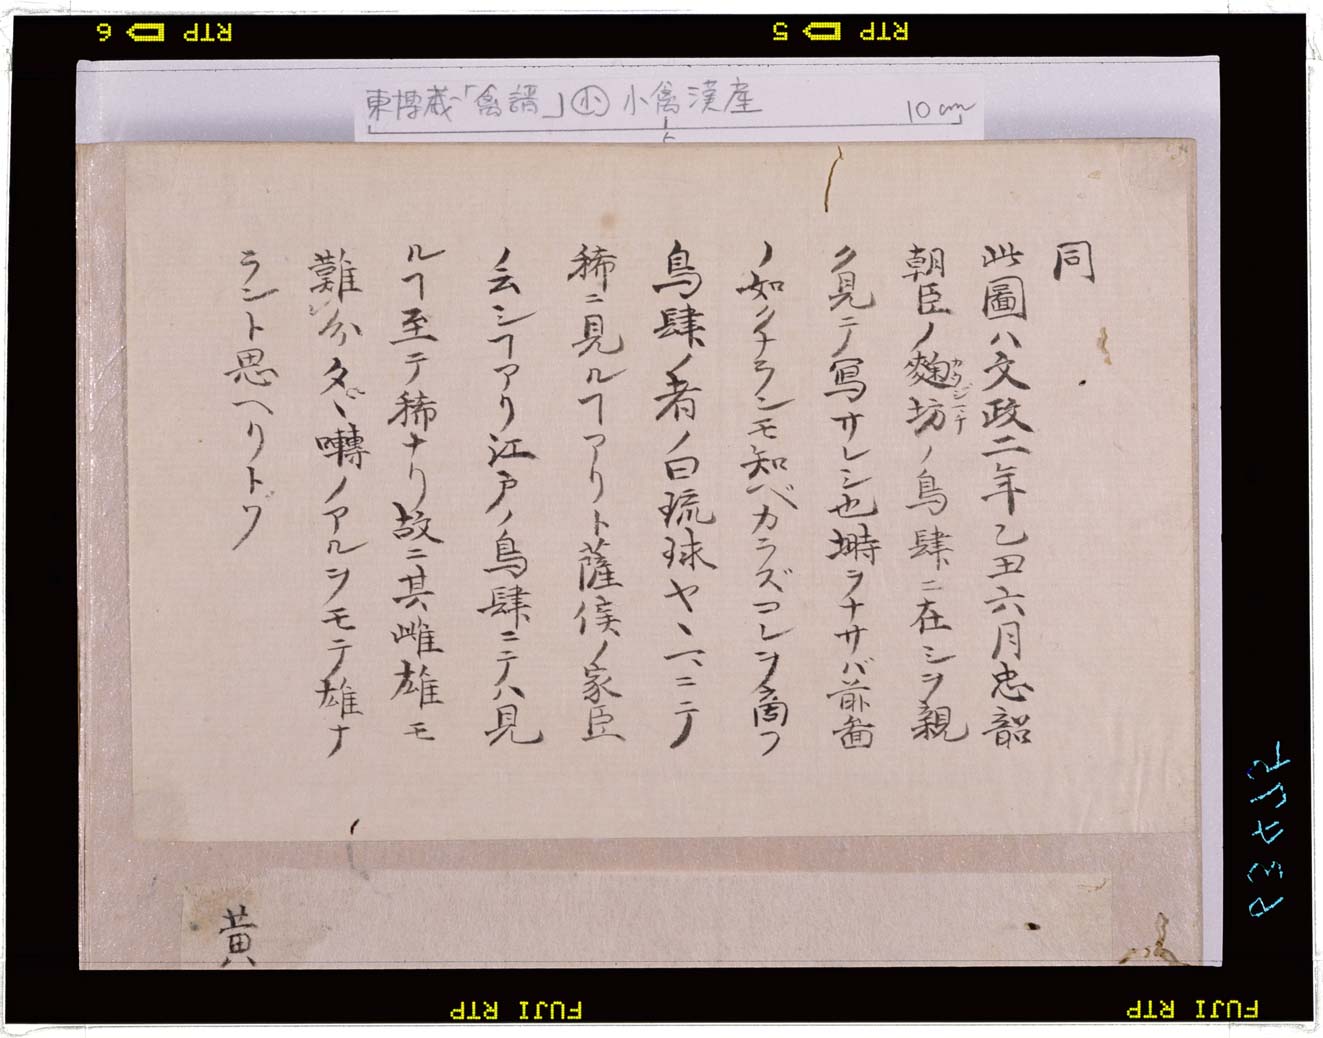 RTP 5
RTP 6
東博蔵「禽譜」㋛小禽漢産
10cm
同
此圖ハ文政二年乙丑六月忠韶
朝臣ノ麹坊ノ鳥肆ニ在シヲ親
ク見テ寫サレシ也塒ヲナサバ前圖
ノ如クナランモ知ベカラズコレヲ商フ
鳥肆ノ者ノ曰琉球ヤヽ一ニニテ
稀ニ見ルヿアリト薩侯ノ家臣
ノ云シヿアリ江戸ノ鳥肆ニテハ見
ルヿ至テ稀ナリ故ニ其雌雄モ
難分タヾ囀ノアルヲモテ雄ナ
ラント思ヘリトゾ
黄
FUJI RTP
FUJI RTP